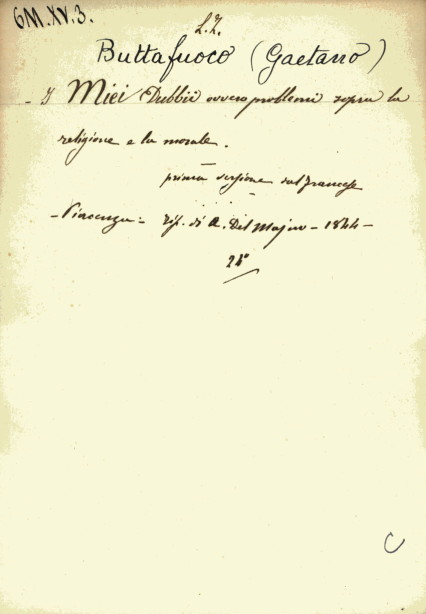 6M.XV.3.
L.Z.
Buttafuoco (Gaetano)
- I Miei Dubbii ovvero problemi sopra la
religione e la morale.
prima versione dal francese
- Piacenza = Tip. di A. Del Majno - 1844 -
24°
C